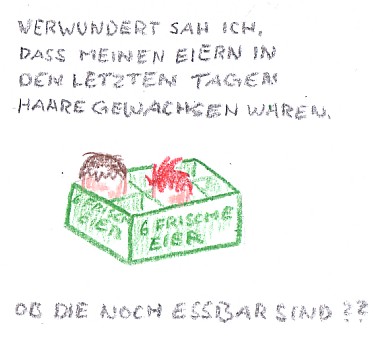 VERWUNDERT SAH ICH,
DASS MEINEN EIERN IN
DEN LETZTEN TAGEN
HAARE GEWACHSEN WAREN.
6 FRISCHE
EIER
6 FRISCHE
EIER
OB DIE NOCH ESSBAR SIND ??